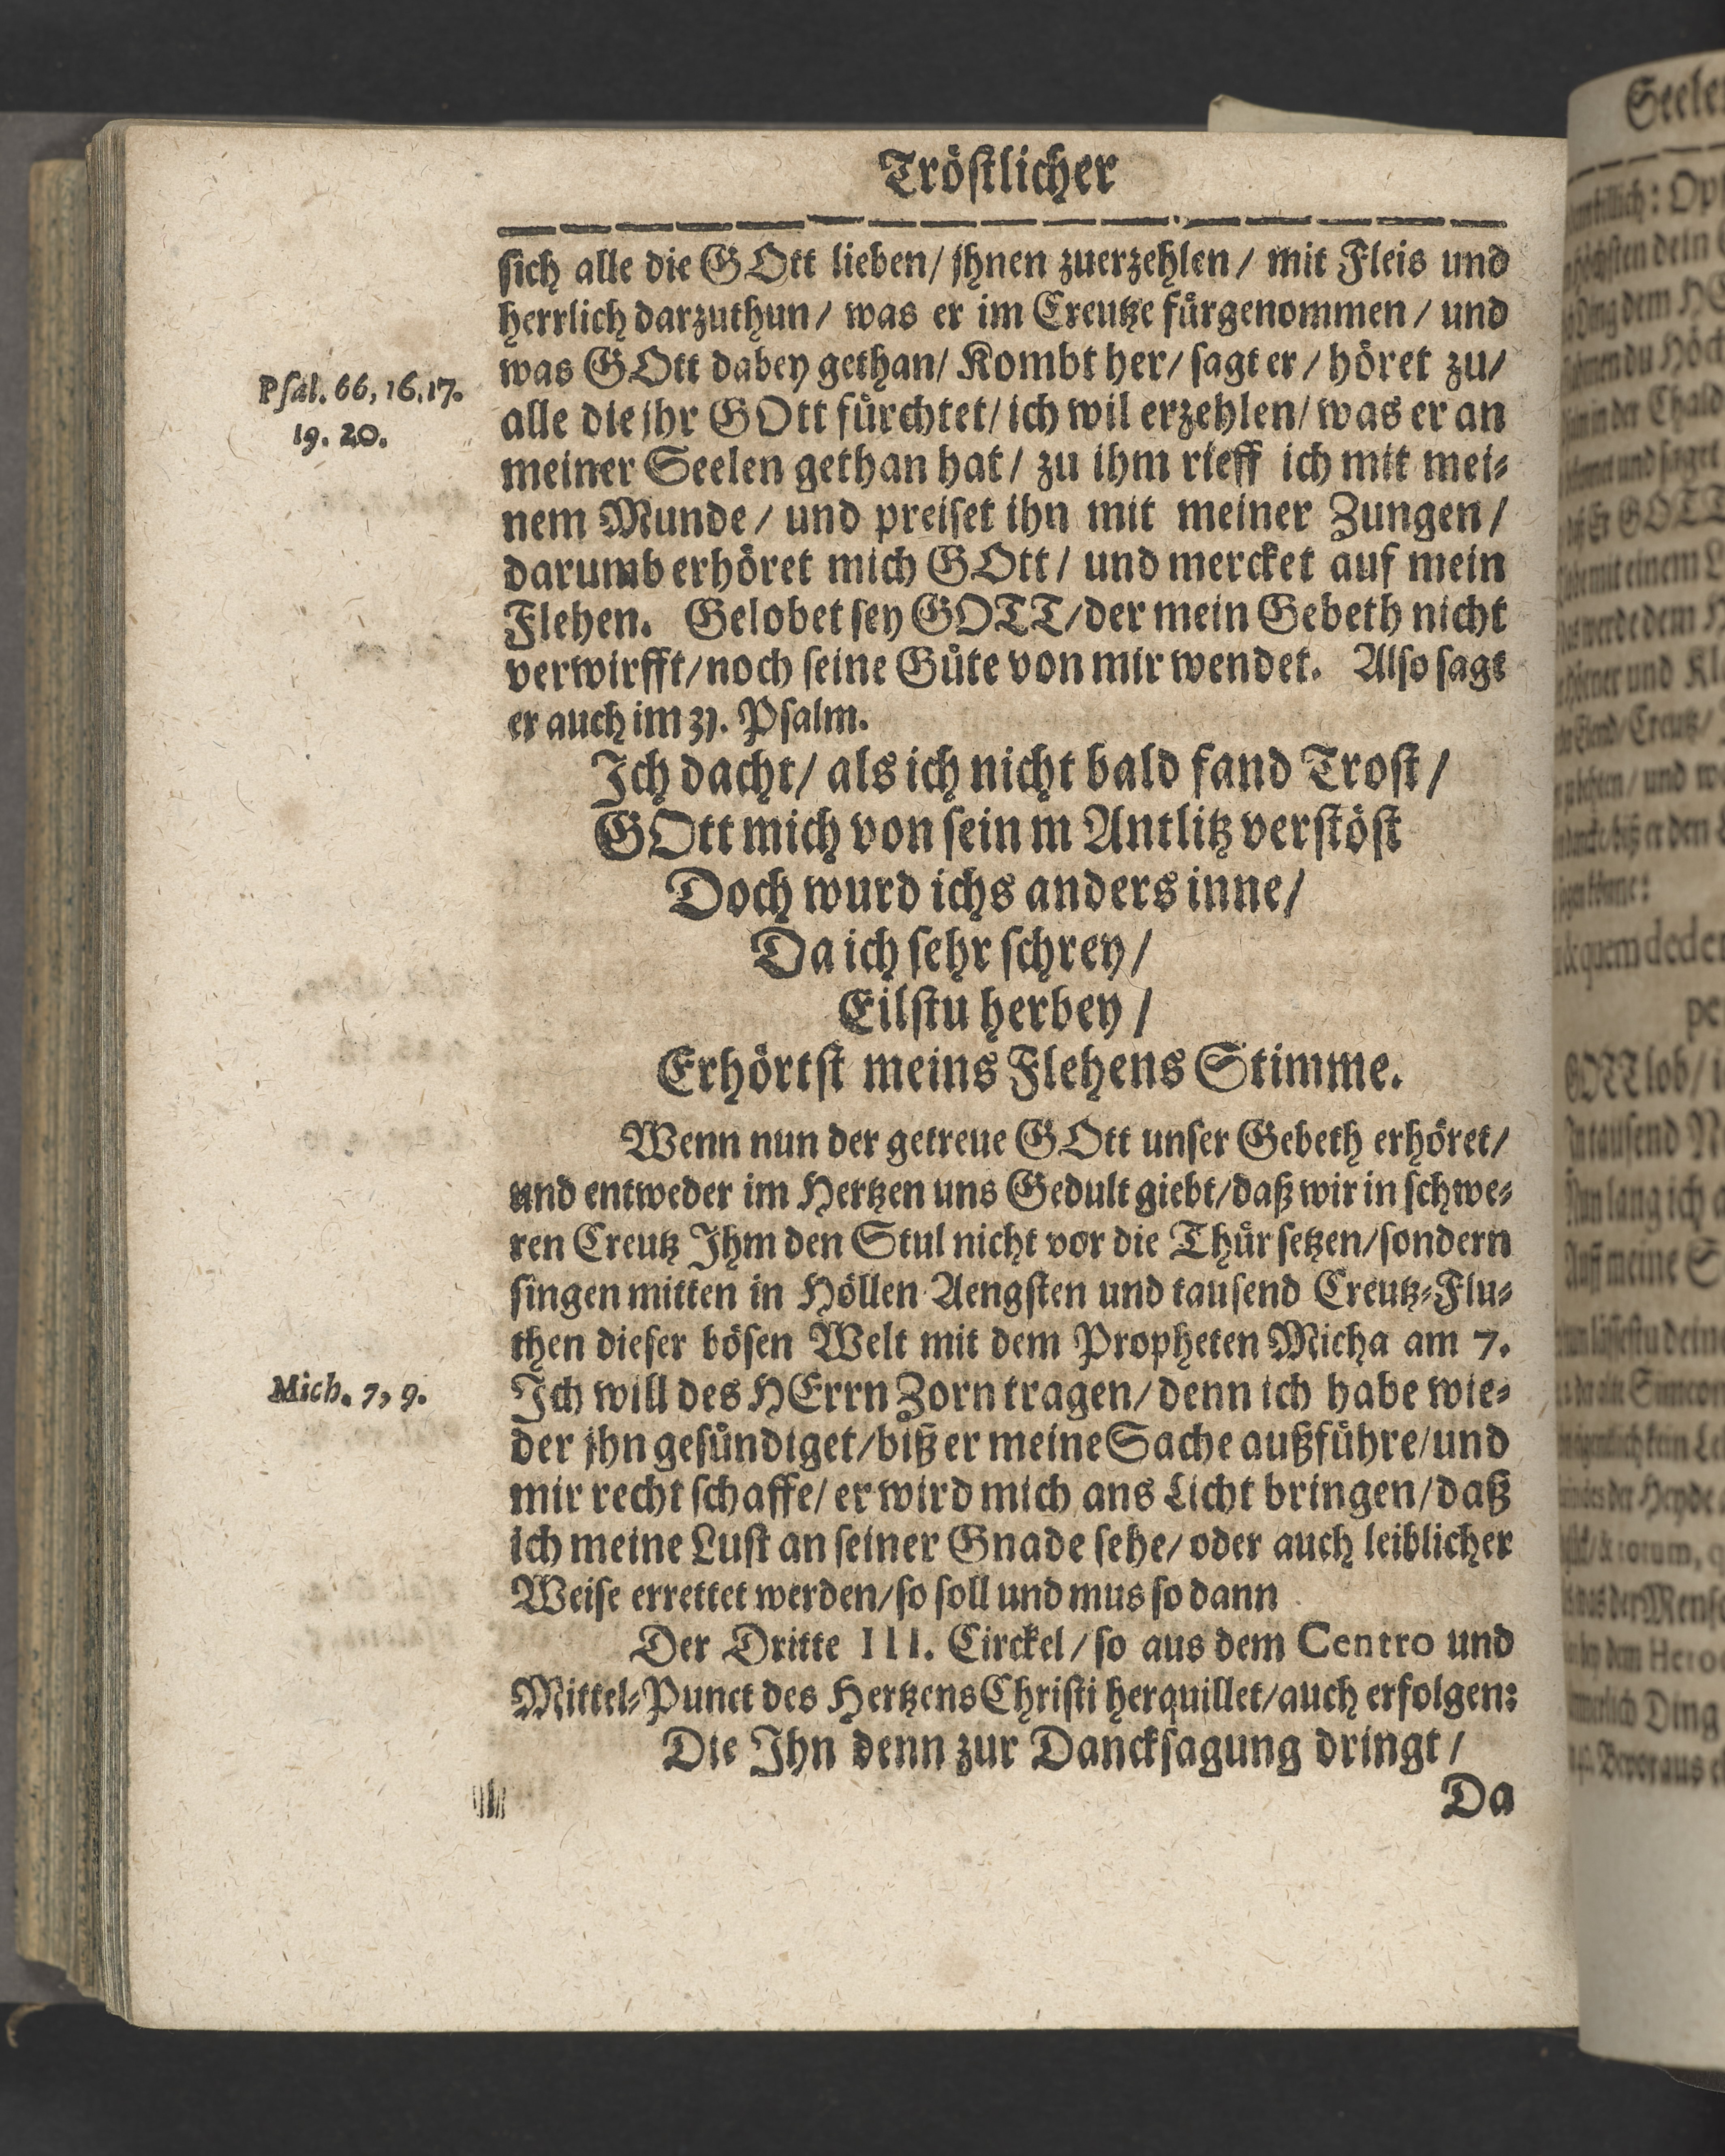 Tröſtlicher
ſich alle die GOtt lieben/ jhnen zuerzehlen/ mit Fleis und
herrlich darzuthun/ was er im Creutze fürgenommen/ und
was GOtt dabey gethan/ Kombt her/ ſagt er/ höret zu/
Pſal. 66, 16. 17.
19. 20.
alle die jhr GOtt fürchtet/ ich wil erzehlen/ was er an
meiner Seelen gethan hat/ zu ihm rieff ich mit mei⸗
nem Munde/ und preiſet ihn mit meiner Zungen/
darumb erhöret mich GOtt/ und mercket auf mein
Flehen. Gelobet ſey GOTT/ der mein Gebeth nicht
verwirfft/ noch ſeine Güte von mir wendet. Alſo ſagt
er auch im 31. Pſalm.
Ich dacht/ als ich nicht bald fand Troſt/
GOtt mich von ſein m Antlitz verſtöſt
Doch wurd ichs anders inne/
Da ich ſehr ſchrey/
Eilſtu herbey/
Erhörtſt meins Flehens Stimme.
Wenn nun der getreue GOtt unſer Gebeth erhöret/
und entweder im Hertzen uns Gedult giebt/ daß wir in ſchwe⸗
ren Creutz Ihm den Stul nicht vor die Thür ſetzen/ ſondern
ſingen mitten in Höllen Aengſten und tauſend Creutz⸗Flu⸗
then dieſer böſen Welt mit dem Propheten Micha am 7.
Mich. 7, 9.
Ich will des HErrn Zorn tragen/ denn ich habe wie⸗
der jhn geſündiget/ biß er meine Sache außführe/ und
mir recht ſchaffe/ er wird mich ans Licht bringen/ daß
ich meine Luſt an ſeiner Gnade ſehe/ oder auch leiblicher
Weiſe errettet werden/ ſo ſoll und mus ſo dann
Der Dritte III. Circkel/ ſo aus dem Centro und
Mittel⸗Punct des Hertzens Chriſti herquillet/ auch erfolgen:
Die Ihn denn zur Danckſagung dringt/
Da